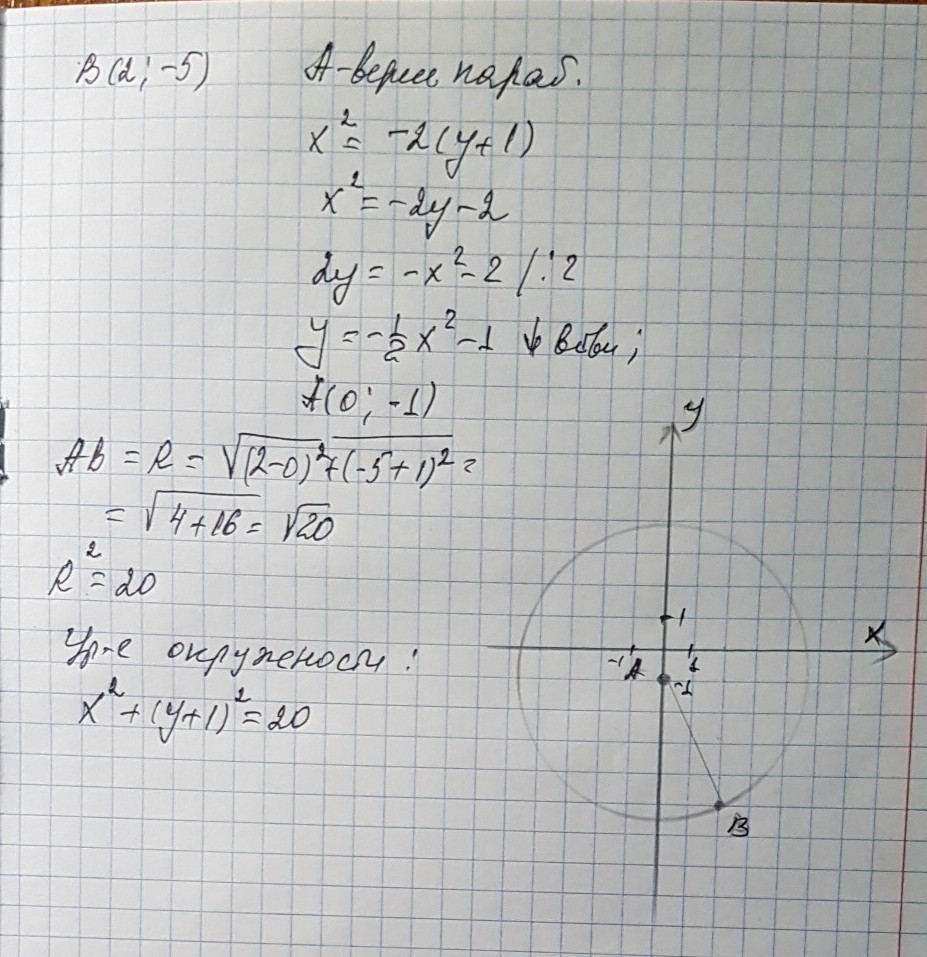 B(2; -5) A-верш параб.
x² = -2(y+1)
x² = -2y-2
2y = -x²-2 /:2
y = -1/2 x² -1 ↓ ветви;
A(0; -1)
AB = R = √(2-0)²+(-5+1)² =
= √4+16 = √20
R² = 20
Ур-е окружности:
x² + (y+1)² = 20
y
1
x
-1 A 1
-1
B